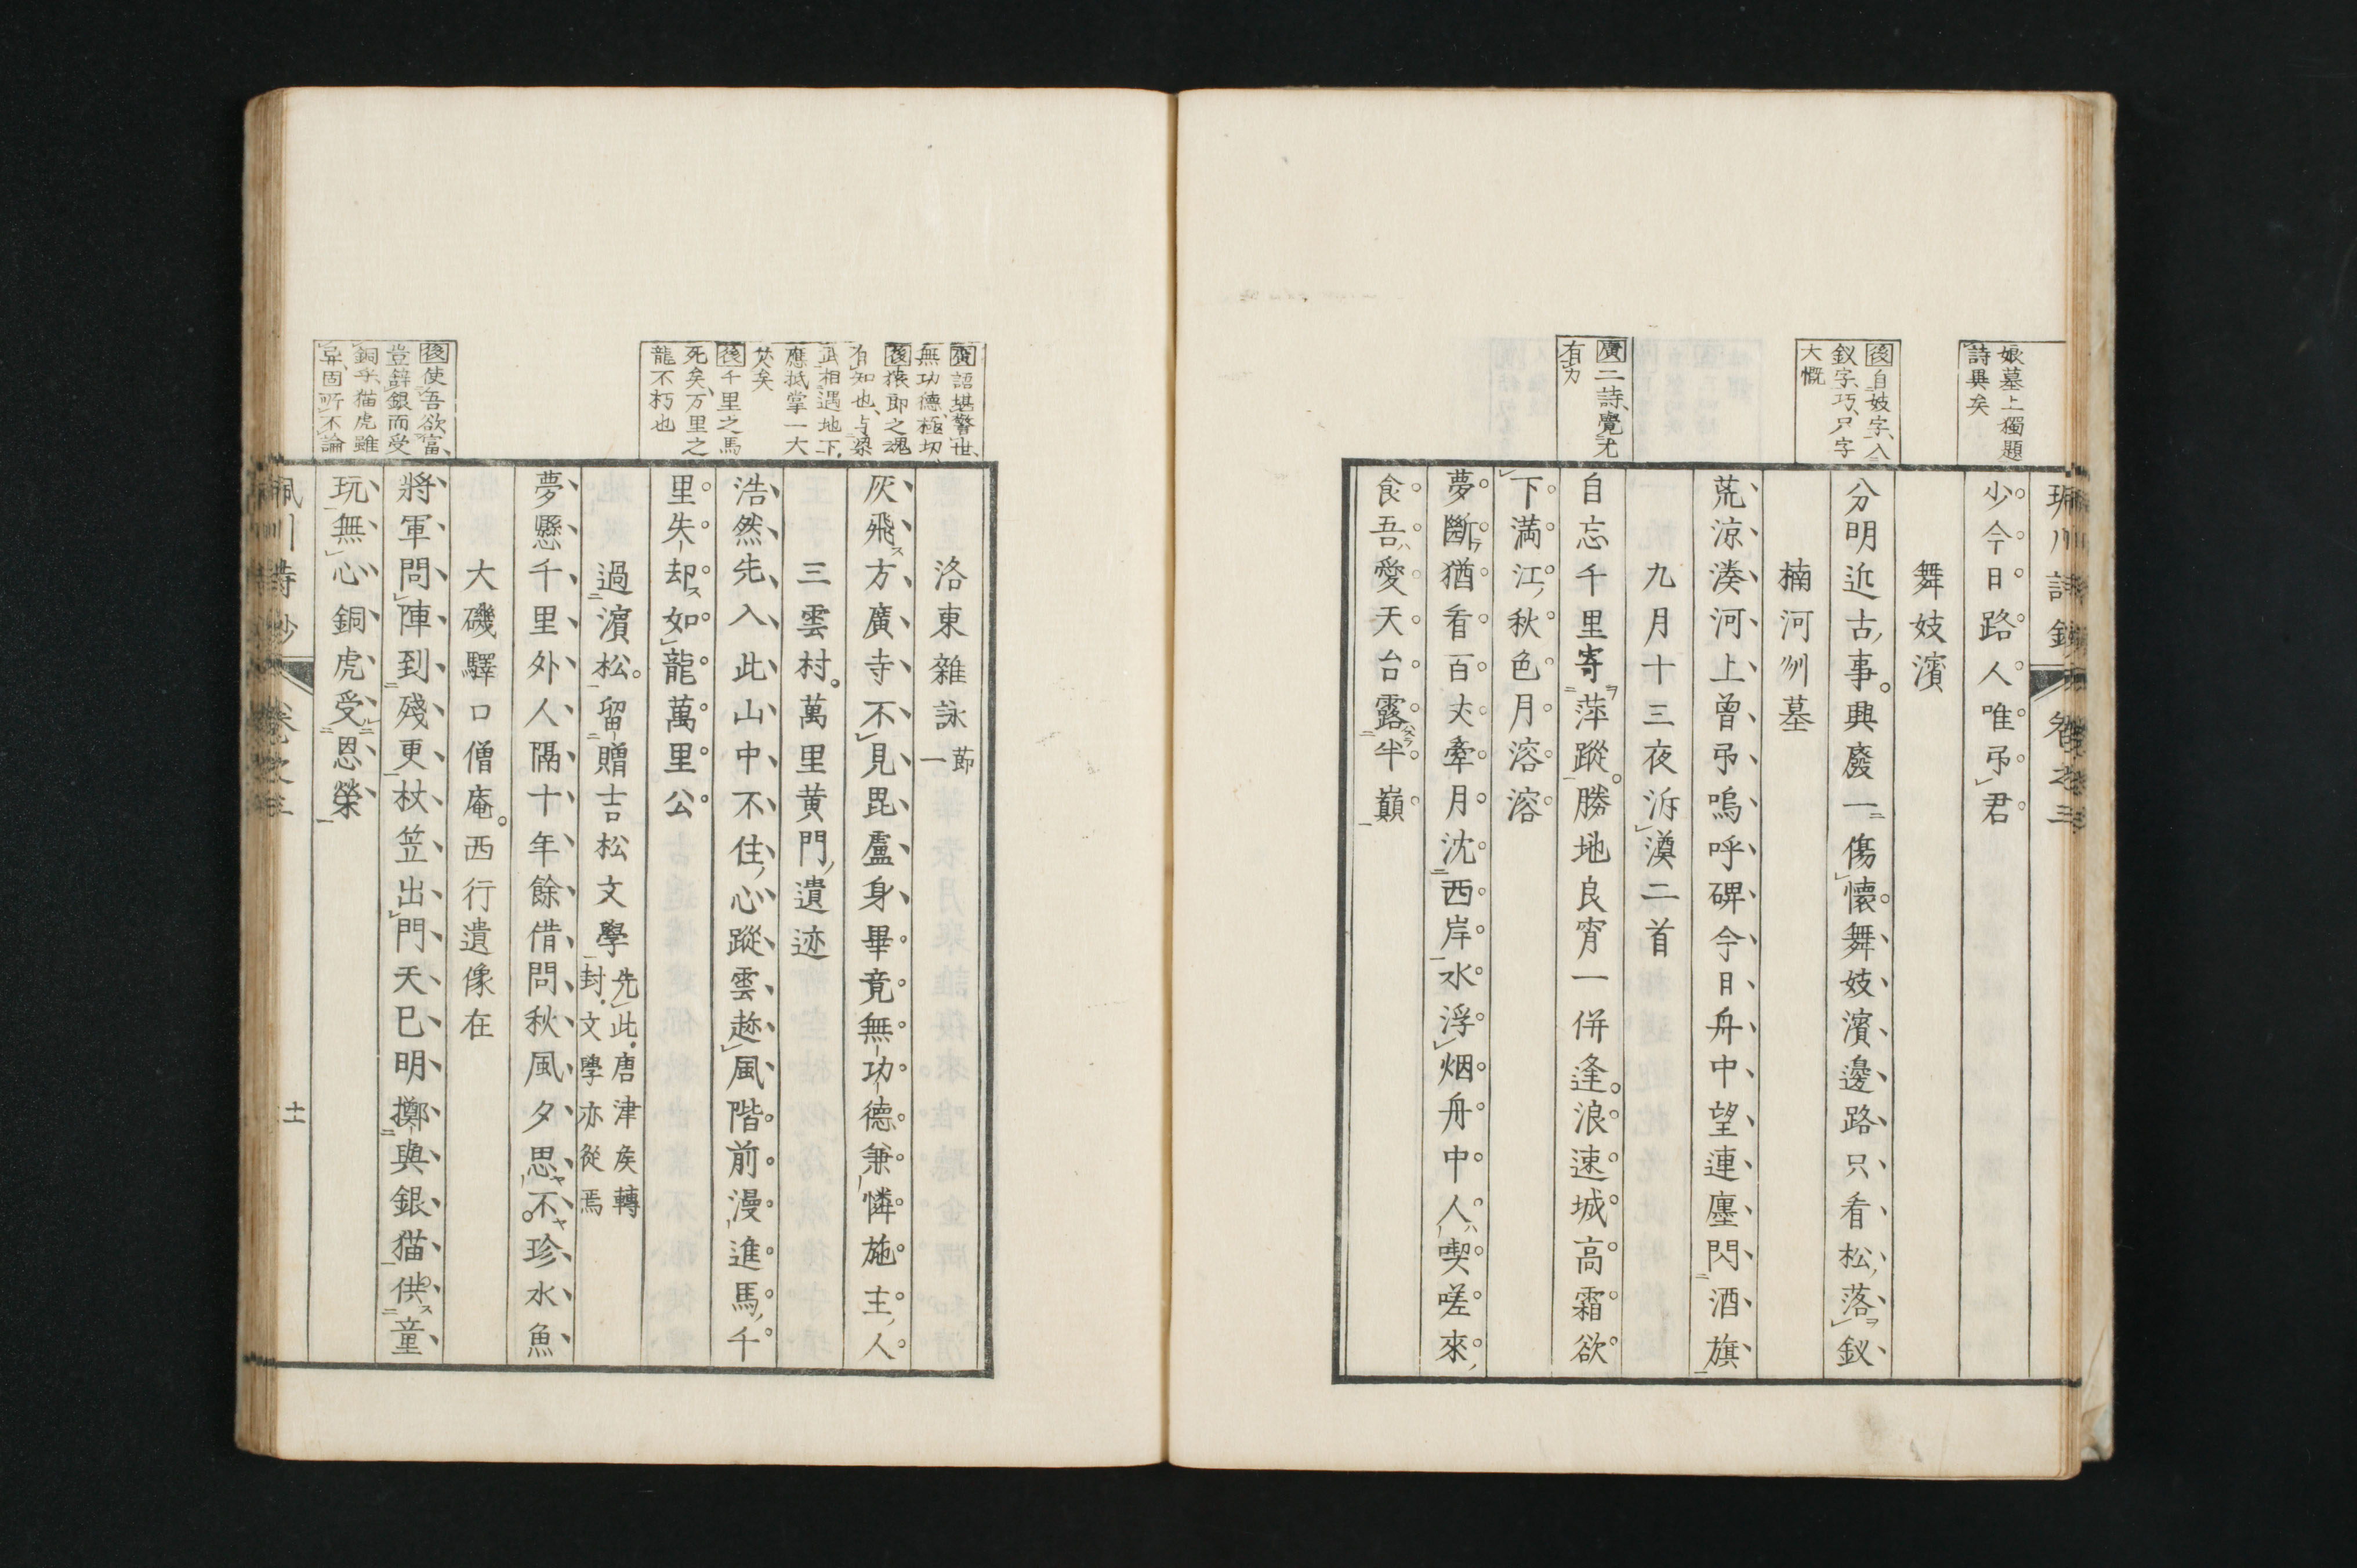 娘墓上獨題
詩異矣
少今日路人唯弔君
舞妓濱
後自妓字入
釵字巧只字
大慨
分明近古事興廢一傷懷舞妓濱邊路只看松落釵
楠河州墓
荒涼湊河上曾弔嗚呼碑今日舟中望連廛閃酒旗
九月十三夜泝澳二首
廣二詩覺尤
有力
自忘千里寄萍蹤勝地良宵一併逢浪速城高霜欲
下満江秋色月溶溶
夢斷猶看百丈牽月沈西岸水浮烟舟中人喫嗟來
食吾愛天台露半巔
洛東雜詠一節
廣語堪警世
無功德極切
後猿郎之魂
有知也与梁
武相遇地下
應抵掌一大
笑矣
灰飛方廣寺不見毘盧身畢竟無功德兼憐施主人
三雲村萬里黄門遺迹
浩然先入此山中不住心蹤雲趂風階前漫進馬千
後千里之馬
死矣万里之
龍不朽也
里失却如龍萬里公
過濱松留贈吉松文學先此唐津矦轉
封文學亦從焉
夢懸千里外人隔十年餘借問秋風夕思不珍水魚
大磯驛口僧庵西行遺像在
後使吾欲富
豈辭銀而受
銅乎猫虎雖
異固所不論
將軍問陣到殘更杖笠出門天已明擲與銀猫供童
玩無心銅虎受恩榮
珮川詩鈔 卷之三
十一